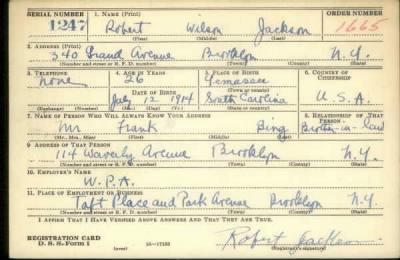 SERIAL NUMBER 1. NAME (Print) ORDER NUMBER
1247 Robert Wilson Jackson 1665
(First) (Middle) (Last)
2. ADDRESS (Print)
340 Grand Avenue Brooklyn N.Y.
(Number and street or R. F. D. number) (Town) (County) (State)
3. TELEPHONE 4. AGE IN YEARS 5. PLACE OF BIRTH 6. COUNTRY OF CITIZENSHIP
None 26
(Town or county)
DATE OF BIRTH
July 12 1914 South Carolina U.S.A.
(Exchange) (Number) (Mo.) (Day) (Yr.) (State or country)
7. NAME OF PERSON WHO WILL ALWAYS KNOW YOUR ADDRESS 8. RELATIONSHIP OF THAT PERSON
Mr Frank Bing Brother-in-law
(Mr., Mrs., Miss) (First) (Middle) (Last)
9. ADDRESS OF THAT PERSON
114 Waverly Avenue Brooklyn N.Y.
(Number and street or R. F. D. number) (Town) (County) (State)
10. EMPLOYER'S NAME
W.P.A.
11. PLACE OF EMPLOYMENT OR BUSINESS
Taft Place and Park Avenue Brooklyn N.Y.
(Number and street or R. F. D. number) (Town) (County) (State)
I AFFIRM THAT I HAVE VERIFIED ABOVE ANSWERS AND THAT THEY ARE TRUE.
REGISTRATION CARD Robert Jackson
D. S. S. Form 1 (over) 16—17105 (Registrant's signature)